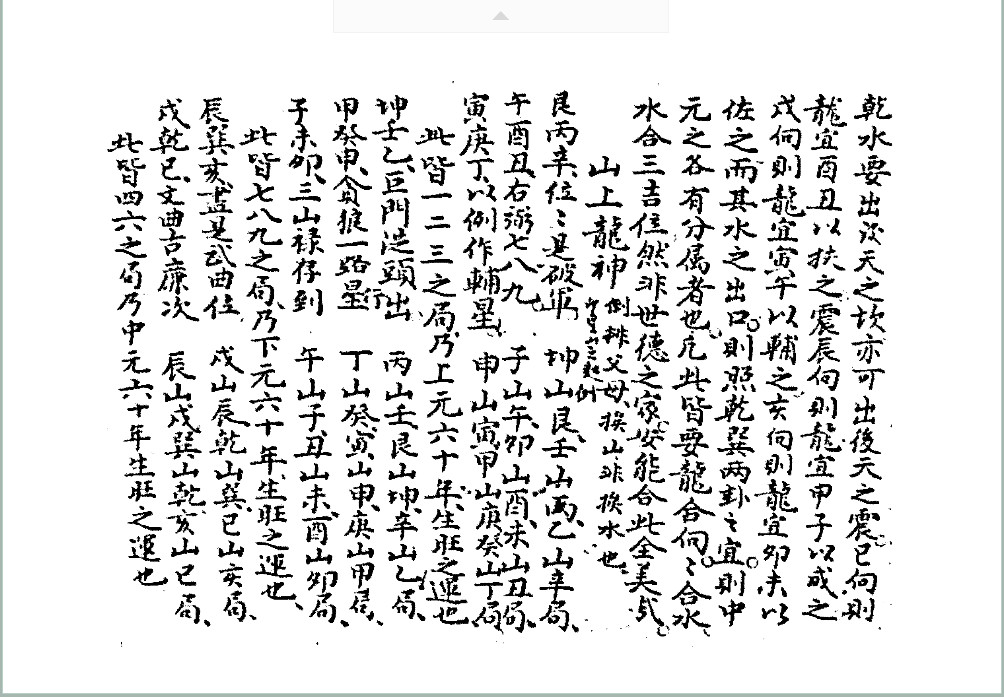 乾水要出後天之坎亦可出後天之震巳向則
龍宜酉丑以扶之震辰向則龍宜甲子以成之
戌向則龍宜寅午以輔之亥向則龍宜卯未以
佐之而其水之出口則照乾巽兩卦之宜則中
元之各有分属者也凡此皆要龍合向々合水
水合三吉位然非世德之家安能合此全美哉
山上龍神 倒排父母 換山非換水也
艮丙辛位々是破軍 坤山艮壬山丙乙山辛局
午酉丑右弼七八九 子山午卯山酉未山丑局
寅庚丁以例作輔星 申山寅甲山庚癸山丁局
此皆一二三之局乃上元六十年生旺之運也
坤壬乙巨門逆頭出 丙山壬艮山坤辛山乙局
甲癸申貪狼一路星行 丁山癸寅山申庚山甲局
子未卯三山禄存到 午山子丑山未酉山卯局
此皆七八九之局乃下元六十年生旺之運也
辰巽亥盡是武曲位 戌山辰乾山巽巳山亥局
戌乾巳文曲古廉次 辰山戌巽山乾亥山巳局
此皆四六之局乃中元六十年生旺之運也